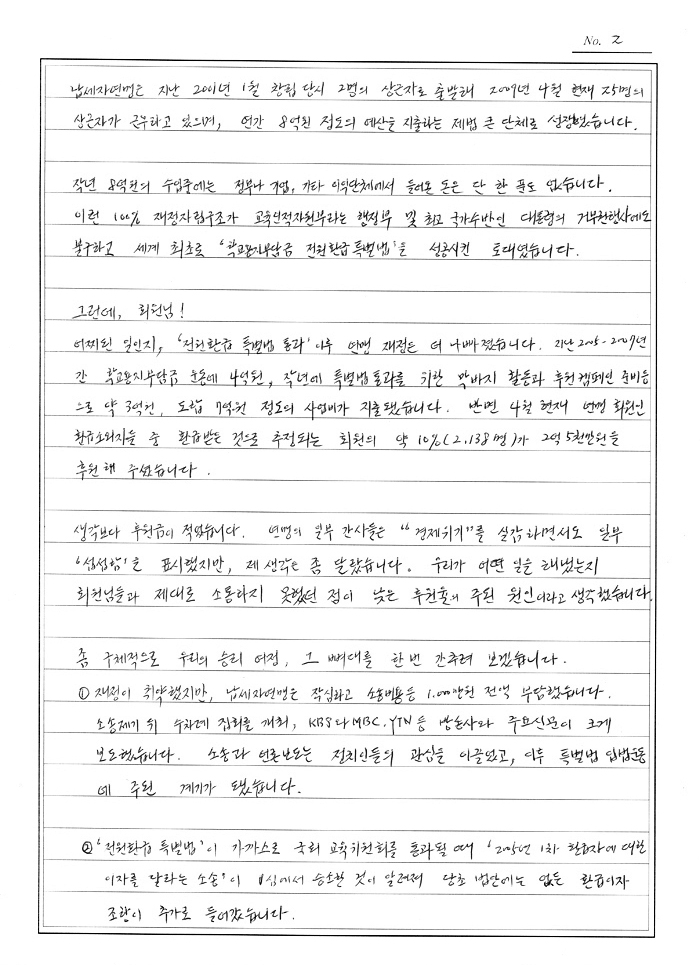 No. 2
납세자연맹은 지난 2001년 1월 창립 당시 2명의 상근자로 출발해 2009년 4월 현재 25명의
상근자가 근무하고 있으며, 연간 8억원 정도의 예산을 지출하는 제법 큰 단체로 성장했습니다.
작년 8억원의 수입중에는 정부나 기업, 기타 이익단체에서 들어온 돈은 단 한 푼도 없습니다.
이런 100% 재정자립구조가 교육인적자원부라는 행정부 및 최고 국가수반인 대통령의 거부권행사에도
불구하고 세계 최초로 '학교용지부담금 전원환급 특별법'을 성공시킨 토대였습니다.
그런데, 회원님!
어찌된 일인지, '전원환급 특별법 통과' 이후 연맹 재정은 더 나빠졌습니다. 지난 2005-2007년
간 학교용지부담금 운동에 4억원, 작년에 특별법 통과를 위한 막바지 활동과 후원캠페인 준비등
으로 약 3억원, 도합 7억원 정도의 사업비가 지출됐습니다. 반면 4월 현재 연맹 회원인
환급소외자들 중 환급받은 것으로 추정되는 회원의 약 10%(2,138명)가 2억 5천만원을
후원해 주셨습니다.
생각보다 후원금이 적었습니다. 연맹의 일부 간사들은 "경제위기"를 실감하면서도 일부
'섭섭함'을 표시했지만, 제 생각은 좀 달랐습니다. 우리가 어떤 일을 해냈는지
회원님들과 제대로 소통하지 못했던 점이 낮은 후원율의 주된 원인이라고 생각했습니다.
좀 구체적으로 우리의 승리 여정, 그 뼈대를 한번 간추려 보겠습니다.
① 재정이 취약했지만, 납세자연맹은 작심하고 소송비용등 1,000만원 전액 부담했습니다.
소송제기 뒤 수차례 집회를 개최, KBS나 MBC, YTN 등 방송사와 주요신문이 크게
보도했습니다. 소송과 언론보도는 정치인들의 관심을 이끌었고, 이후 특별법 입법운동
에 주된 계기가 됐습니다.
② '전원환급 특별법'이 가까스로 국회 교육위원회를 통과될 때 '2005년 1차 환급자에 대한
이자를 달라는 소송'이 1심에서 승소한 것이 알려져 당초 법안에는 없던 환급이자
조항이 추가로 들어갔습니다.